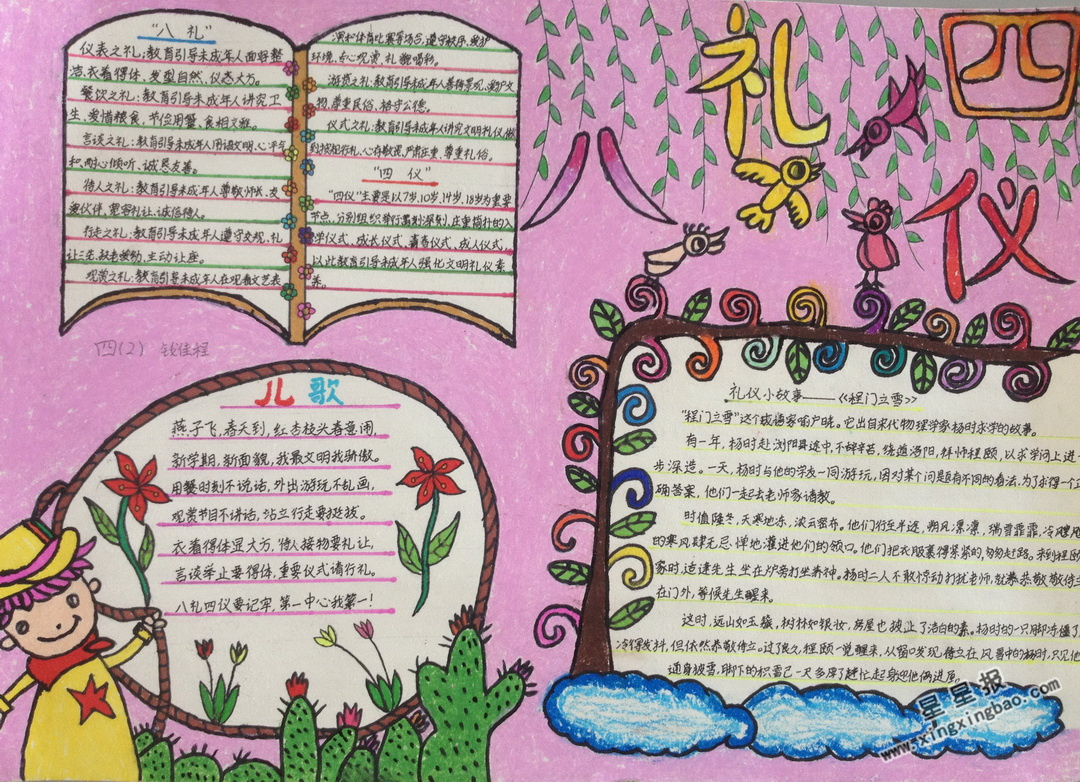 八礼四仪
“八 礼”
仪表之礼：教育引导未成年人面容整
洁、衣着得体、发型自然、仪态大方。
餐饮之礼：教育引导未成年人讲究卫
生、爱惜粮食、节俭用餐、食相文雅。
言谈之礼：教育引导未成年人用语文明、心平气
和、耐心倾听、诚恳友善。
待人之礼：教育引导未成年人尊敬师长、友
爱伙伴、宽容礼让、诚信待人。
行走之礼：教育引导未成年人遵守交规、礼
让三先、扶老爱幼、主动让座。
观赏之礼：教育引导未成年人在观看文艺表
演和体育比赛等场合，遵守秩序、爱护
环境、专心观赏、礼貌喝彩。
游览之礼：教育引导未成年人善待景观、爱护文
物、尊重民俗、恪守公德。
仪式之礼：教育引导未成年人讲究文明礼仪，做
到按规行礼、心存敬畏、严肃庄重、尊重礼俗。
“四 仪”
“四仪”主要是以7岁、10岁、14岁、18岁为重要
节点，分别组织举行策划深刻、庄重简朴的入
学仪式、成长仪式、青春仪式、成人仪式，
以此教育引导未成年人强化文明礼仪素
养。
四(2) 钱佳程
儿歌
燕子飞，春天到，红杏枝头春意闹，
新学期，新面貌，我最文明我骄傲。
用餐时刻不说话，外出游玩不乱画，
观赏节目不讲话，站立行走要挺拔。
衣着得体显大方，待人接物要礼让，
言谈举止要得体，重要仪式请行礼。
八礼四仪要记牢，第一中心我第一！
礼仪小故事——《程门立雪》
“程门立雪”这个成语家喻户晓。它出自宋代物理学家杨时求学的故事。
有一年，杨时赴浏阳县途中，不辞辛苦，绕道洛阳，拜师程颐，以求学问上进一
步深造。一天，杨时与他的学友一同游玩，因对某个问题有不同的看法，为了求得一个正
确答案，他们一起去老师家请教。
时值隆冬，天寒地冻，浓云密布。他们行至半途，朔风凛凛，瑞雪霏霏，冷飕飕
的寒风肆无忌惮地灌进他们的领口。他们把衣服裹得紧紧的，匆匆赶路。来到程颐
家时，适逢先生坐在炉旁打坐养神。杨时二人不敢惊动打扰老师，就恭恭敬敬侍立
在门外，等候先生醒来。
这时，远山如玉簇，树林如银妆，房屋也披上了洁白的素。杨时的一只脚冻僵了
冷得发抖，但依然恭敬侍立。过了良久，程颐一觉醒来，从窗口发现侍立在风雪中的杨时，只见他
通身披雪，脚下的积雪已一尺多厚了，赶忙起身迎他俩进屋。
星星报
www.xingxingbao.com